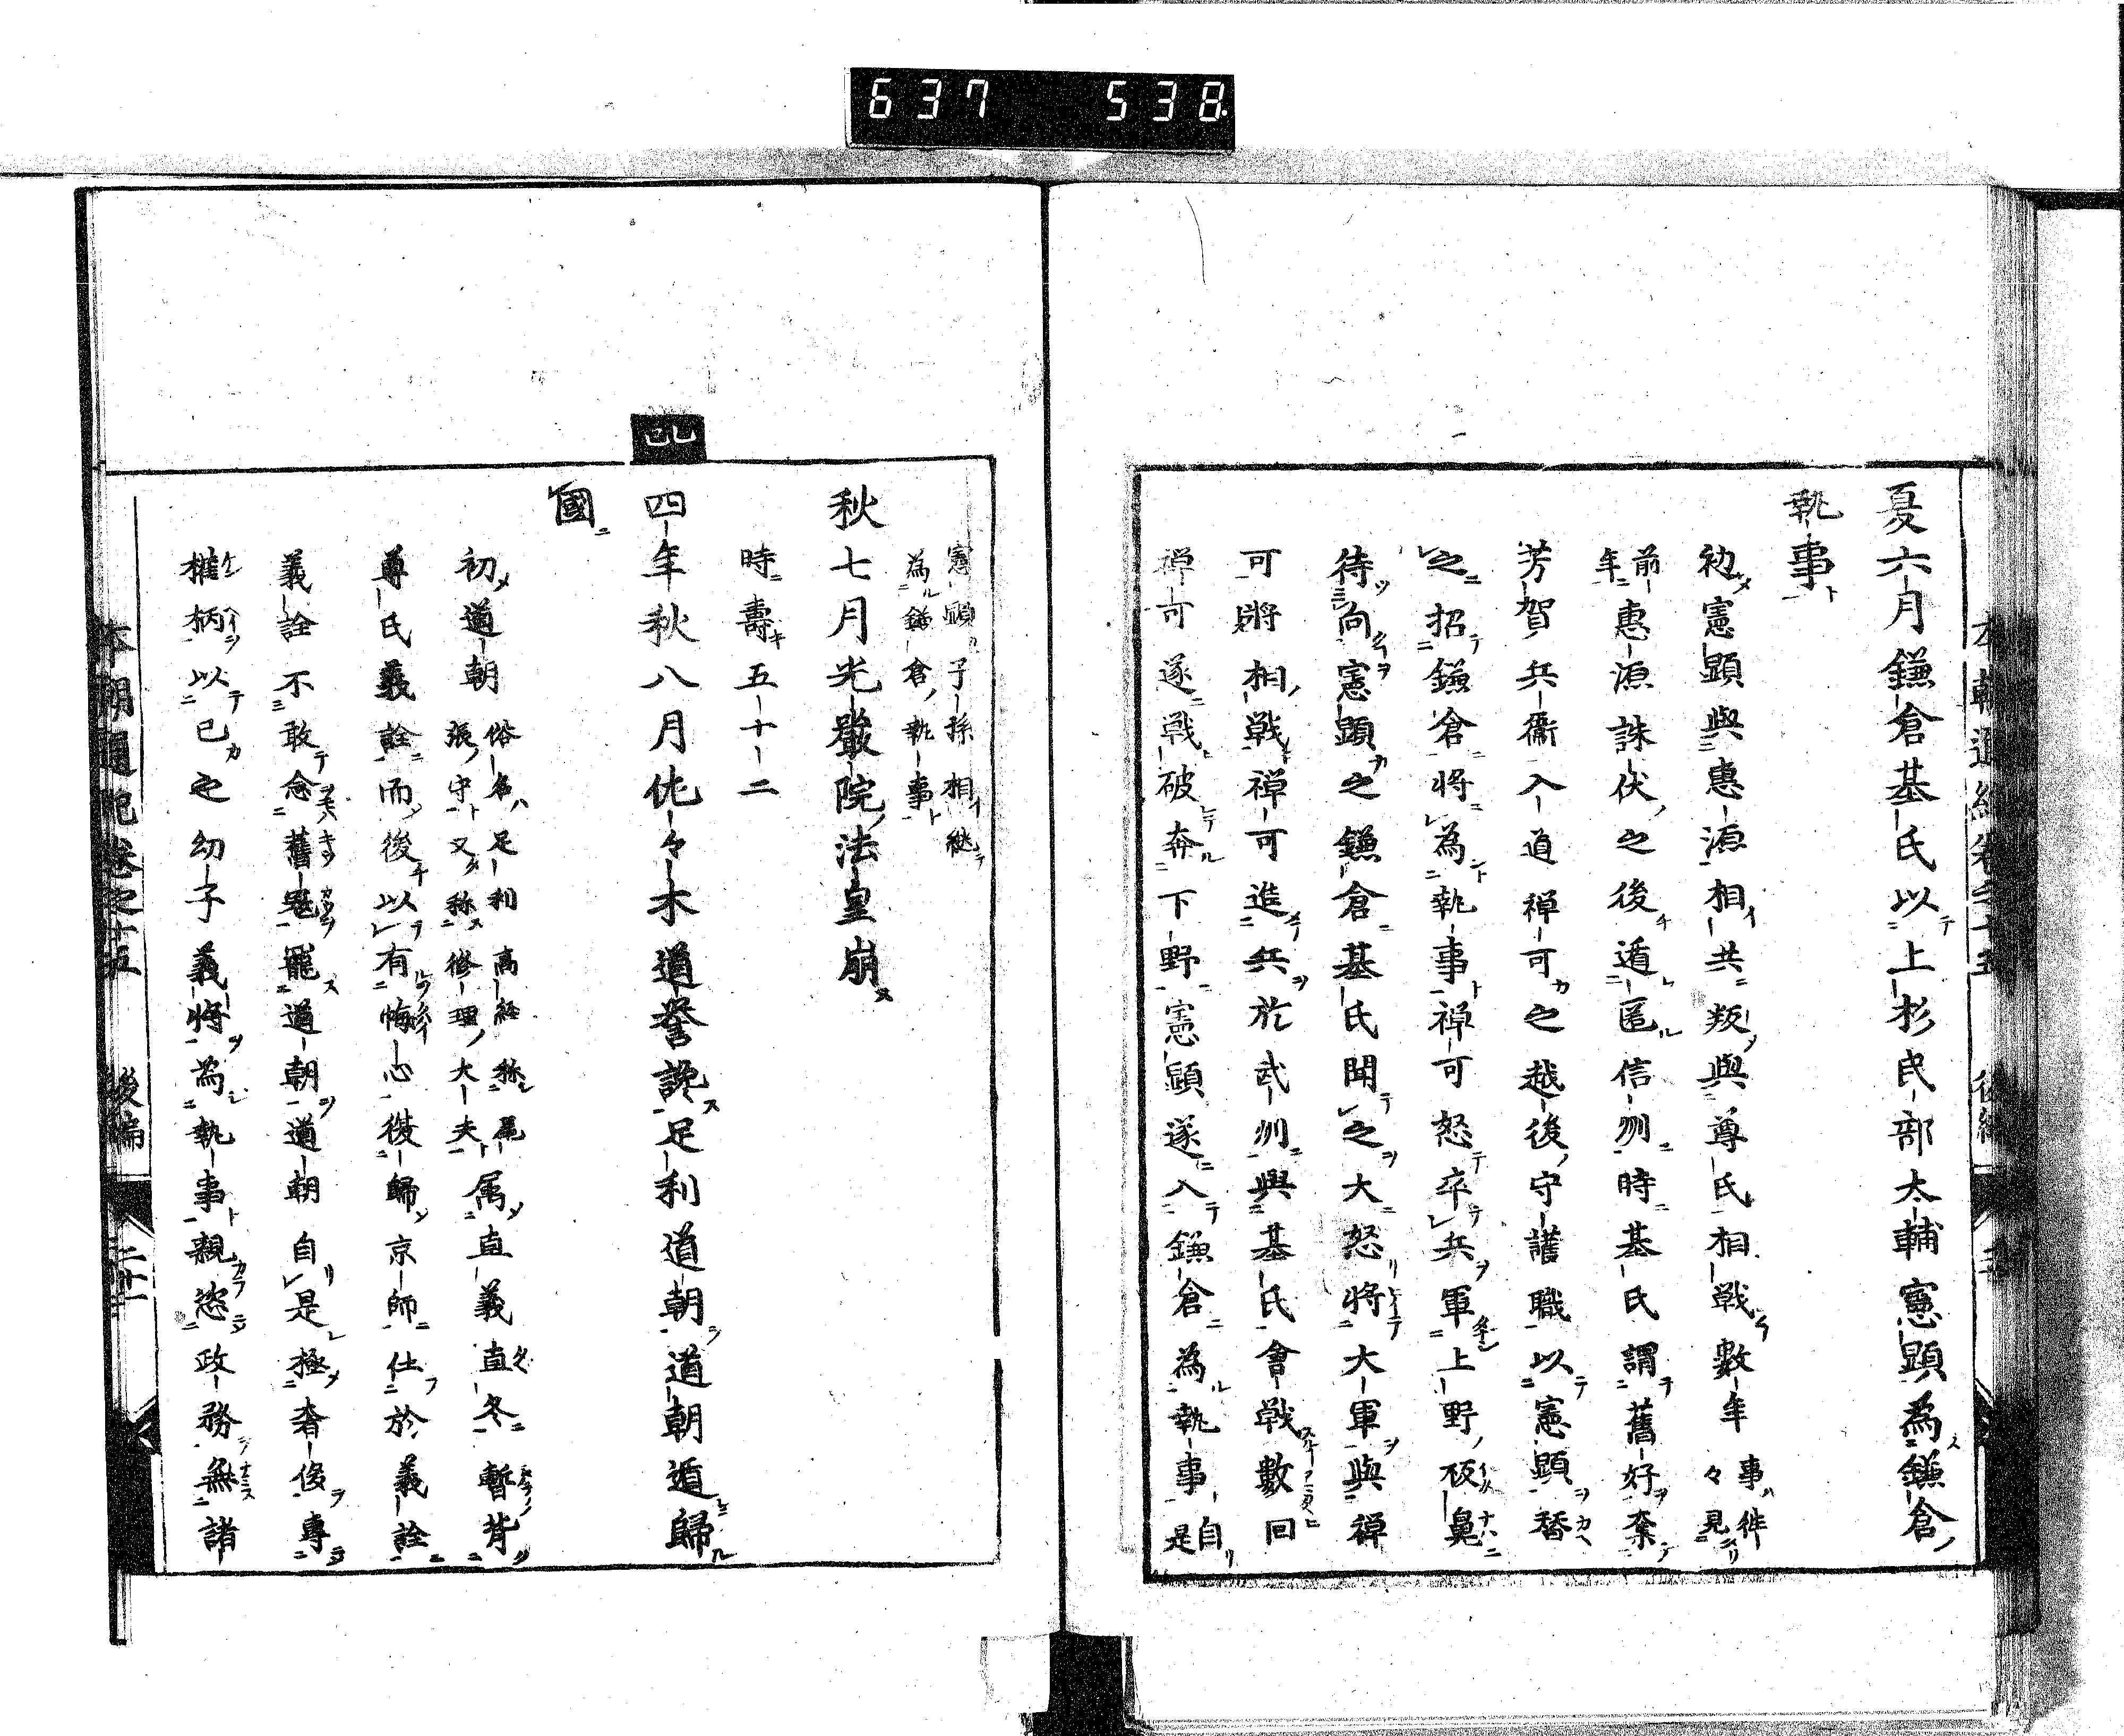 637 538
夏六月鎌倉基氏以上杉民部太輔憲顕為鎌倉
執事
初憲顕與惠源相共叛與尊氏相戦數年事件々見
前年惠源誅伏之後遁匿信州時基氏謂舊好棄
芳賀兵衞入道禅可之越後守護職以憲顕替
之招鎌倉将為執事禅可怒卒兵軍上野板鼻
待向憲顕之鎌倉基氏聞之大怒将大軍與禅
可將相戦禅可進兵於武州與基氏會戦數回
禅可遂戦破奔下野憲顕遂入鎌倉為執事自是
憲顕子孫相継
為鎌倉執事
秋七月光嚴院法皇崩
時壽五十二
乙巳
四年秋八月佐々木道誉讒足利道朝道朝遁歸
國
初道朝俗名足利高経称尾張守又称修理大夫属直義直冬暫背
尊氏義詮而後以有悔心復歸京師仕於義詮
義詮不敢念舊冤寵道朝道朝自是極奢侈專
權柄以己之幼子義将為執事親恣政務無諸
本朝通紀巻之十五 後編 二十一